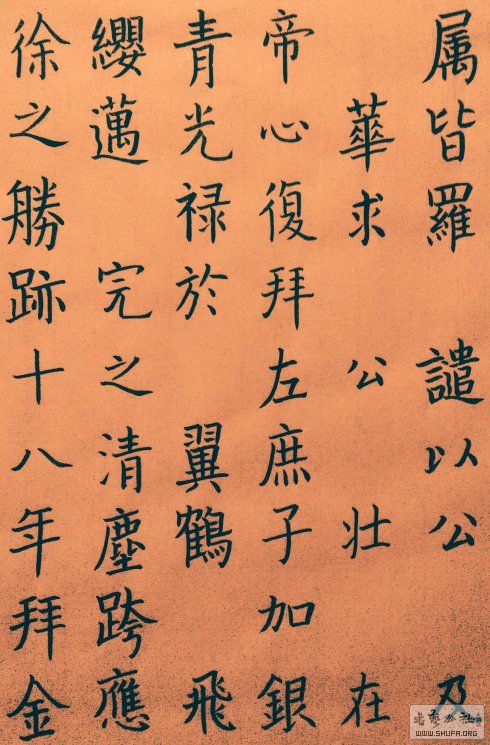 属皆羅譴以公乃
華求公壮在
帝心復拜左庶子加銀
青光禄於翼鶴飛
纓邁完之清塵跨應
徐之勝跡十八年拜金
WWW.SHUFA.ORG